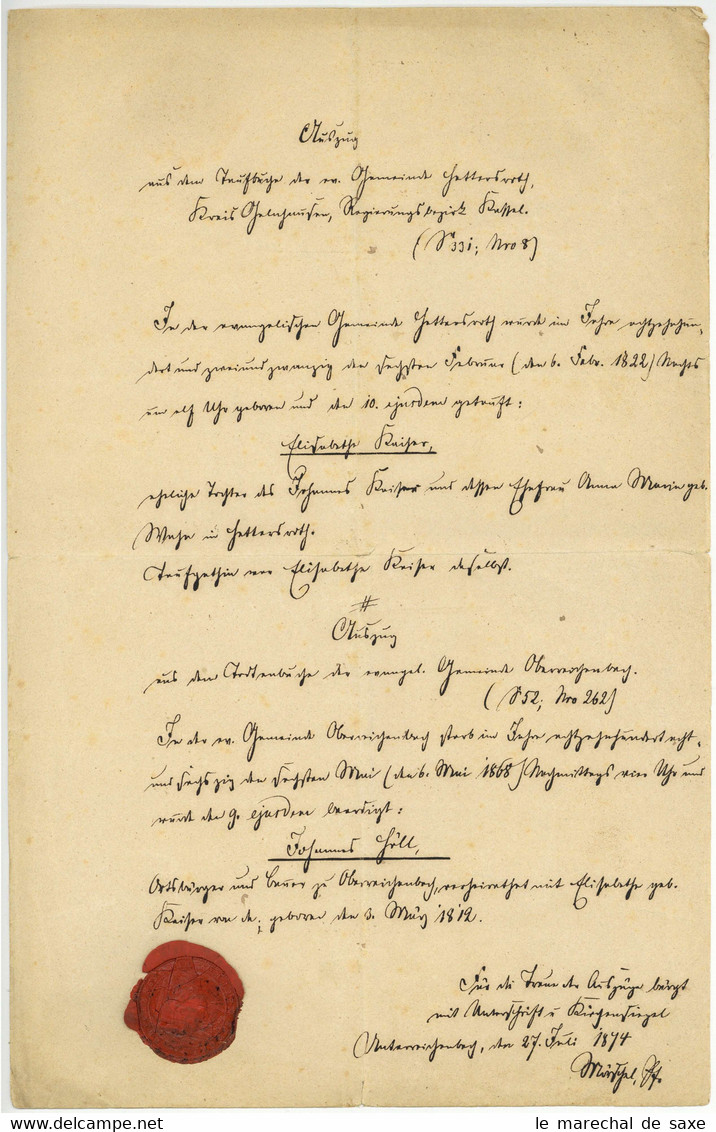 Auszug
aus dem Taufbuche der ev. Gemeinde Hettersroth,
Kreis Gelnhausen, Regierungsbezirk Kassel.
(S. 331; Nro 8)
In der evangelischen Gemeinde Hettersroth wurde im Jahre achtzehnhun-
dert und zweiundzwanzig den sechsten Februar (den 6. Febr. 1822) Nachts
um elf Uhr geboren und den 10. ejusdem getauft:
Elisabethe Kaiser,
eheliche Tochter des Johannes Kaiser und dessen Ehefrau Anna Maria geb.
in Hettersroth.
Taufpathin war Elisabethe Kaiser daselbst.
#
Auszug
aus dem Todtenbuche der evangel. Gemeinde Oberreichenbach.
(S 52; Nro 262)
In der ev. Gemeinde Oberreichenbach starb im Jahre achtzehnhundert acht-
und sechszig den sechsten Mai (den 6. Mai 1868) Nachmittags vier Uhr und
wurde den 9. ejusdem beerdigt:
Johannes Höll,
Ortsbürger und Bauer zu Oberreichenbach, verheirathet mit Elisabethe geb.
Kaiser von da; geboren den 3. März 1812.
Für die Treue der Auszüge bürgt
mit Unterschrift u Kirchensiegel
Unterreichenbach, den 27. Juli 1874
Mörschel, Pf.
le marechal de saxe